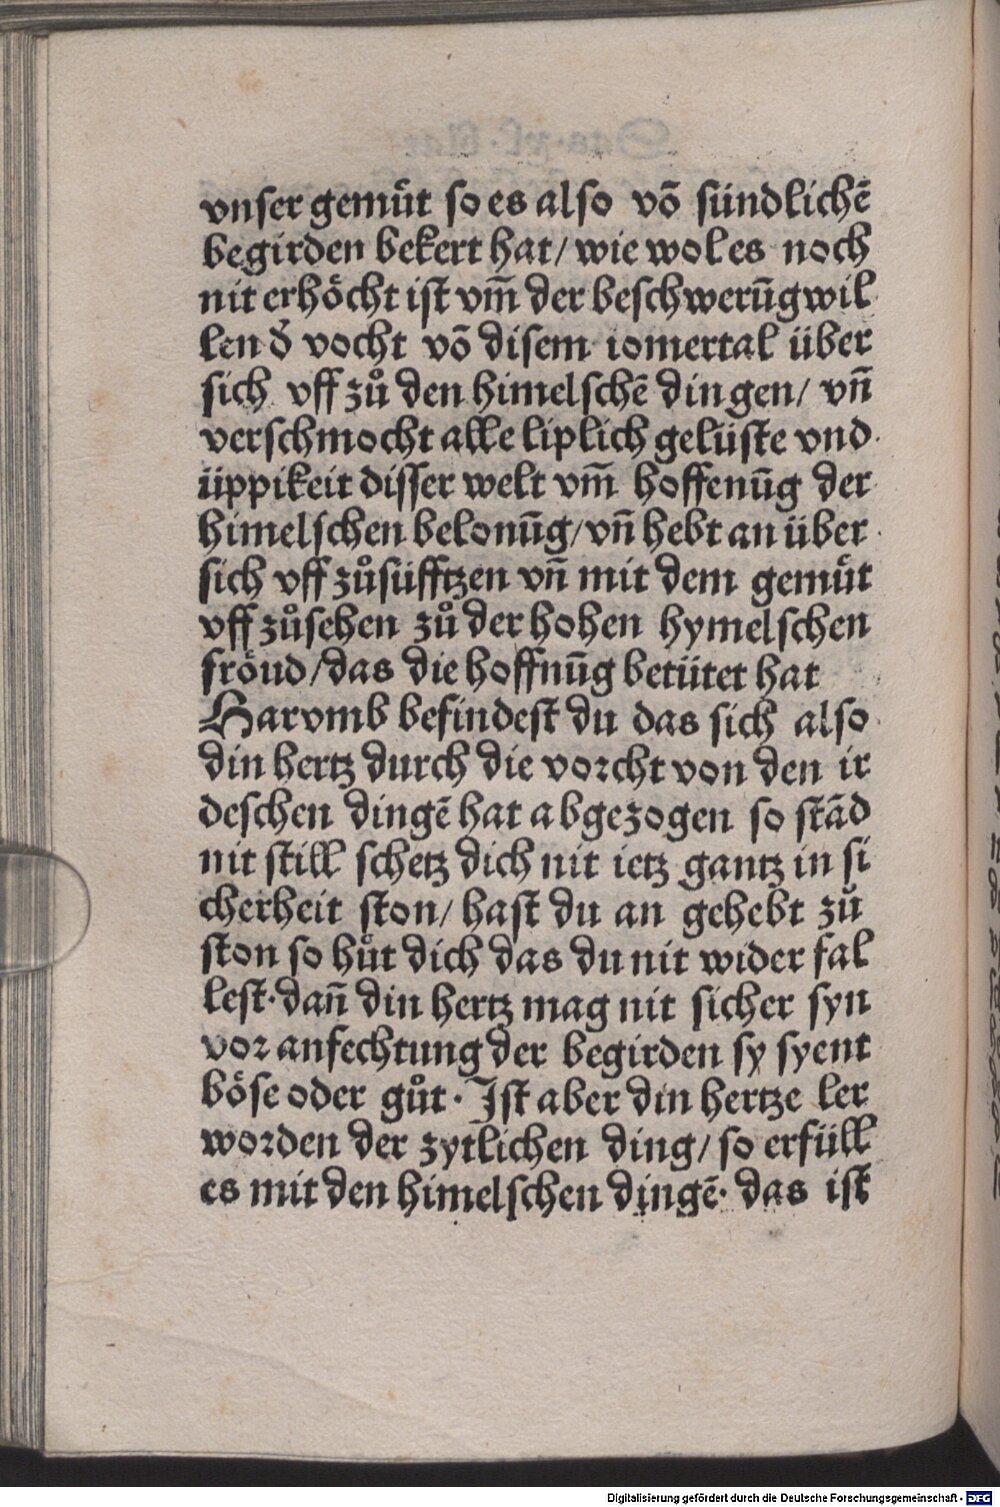 vnser gemuͤt so es also võ sündlichẽ
begirden bekert hat/ wie wol es noch
nit erhoͤcht ist vm̃ der beschwerũg wil
len d̕ vocht võ disem iomertal über
sich vff zuͦ den himelschẽ dingen/ vñ
verschmocht alle liplich gelüste vnd
üppikeit disser welt vm̃ hoffenũg der
himelschen belonũg/ vñ hebt an über
sich vff zuͦsüfftzen vñ mit dem gemuͤt
vff zuͦsehen zuͦ der hohen hymelschen
froͤud/ das die hoffnũg betütet hat
Harvmb befindest du das sich also
din hertz durch die vorcht von den ir
deschen dingẽ hat abgezogen so stãd
nit still schetz dich nit ietz gantz in si
cherheit ston/ hast du an gehebt zuͦ
ston so huͤt dich das du nit wider fal
lest· dañ din hertz mag nit sicher syn
vor anfechtung der begirden sy syent
boͤse oder guͦt· Ist aber din hertze ler
worden der zytlichen ding/ so erfüll
es mit den himelschen dingẽ· das ist
Digitalisierung gefördert durch die Deutsche Forschungsgemeinschaft - DFG